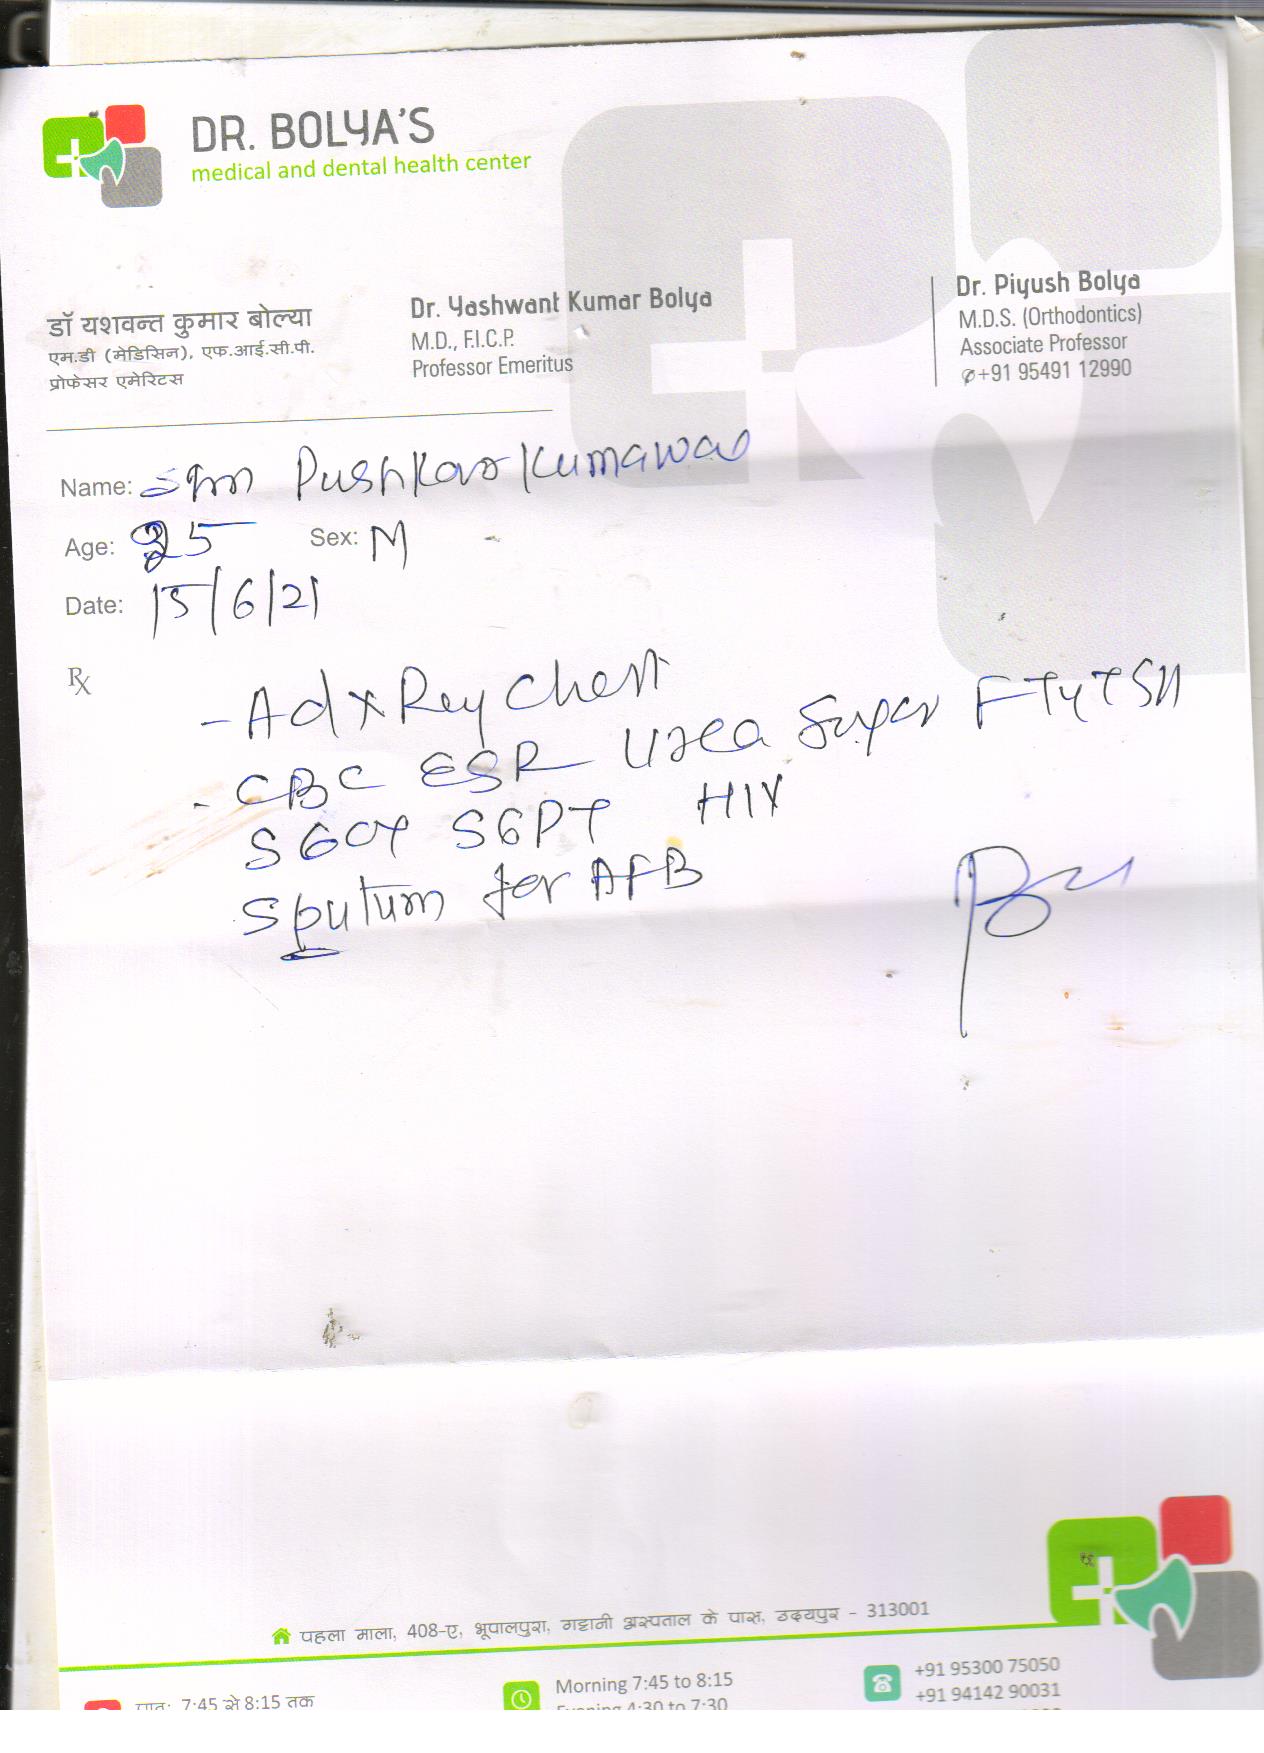 DR. BOLYA'S
medical and dental health center
डॉ यशवन्त कुमार बोल्या
एम.डी (मेडिसिन), एफ.आई.सी.पी.
प्रोफेसर एमेरिटस
Dr. Yashwant Kumar Bolya
M.D., F.I.C.P.
Professor Emeritus
Dr. Piyush Bolya
M.D.S. (Orthodontics)
Associate Professor
+91 95491 12990
Name: Pushkar Kumawat
Age: 25 Sex: M
Date: 15/6/21
Rx
- Ad x Ray Chest
- CBC ESR Urea Sugar TSH
SGOT SGPT HIV
Sputum for AFB
पहला माला, 408-ए, भूपालपुरा, गट्टानी अस्पताल के पास, उदयपुर - 313001
प्रातः 7:45 से 8:15 तक
Morning 7:45 to 8:15
Evening 4:30 to 7:30
+91 95300 75050
+91 94142 90031